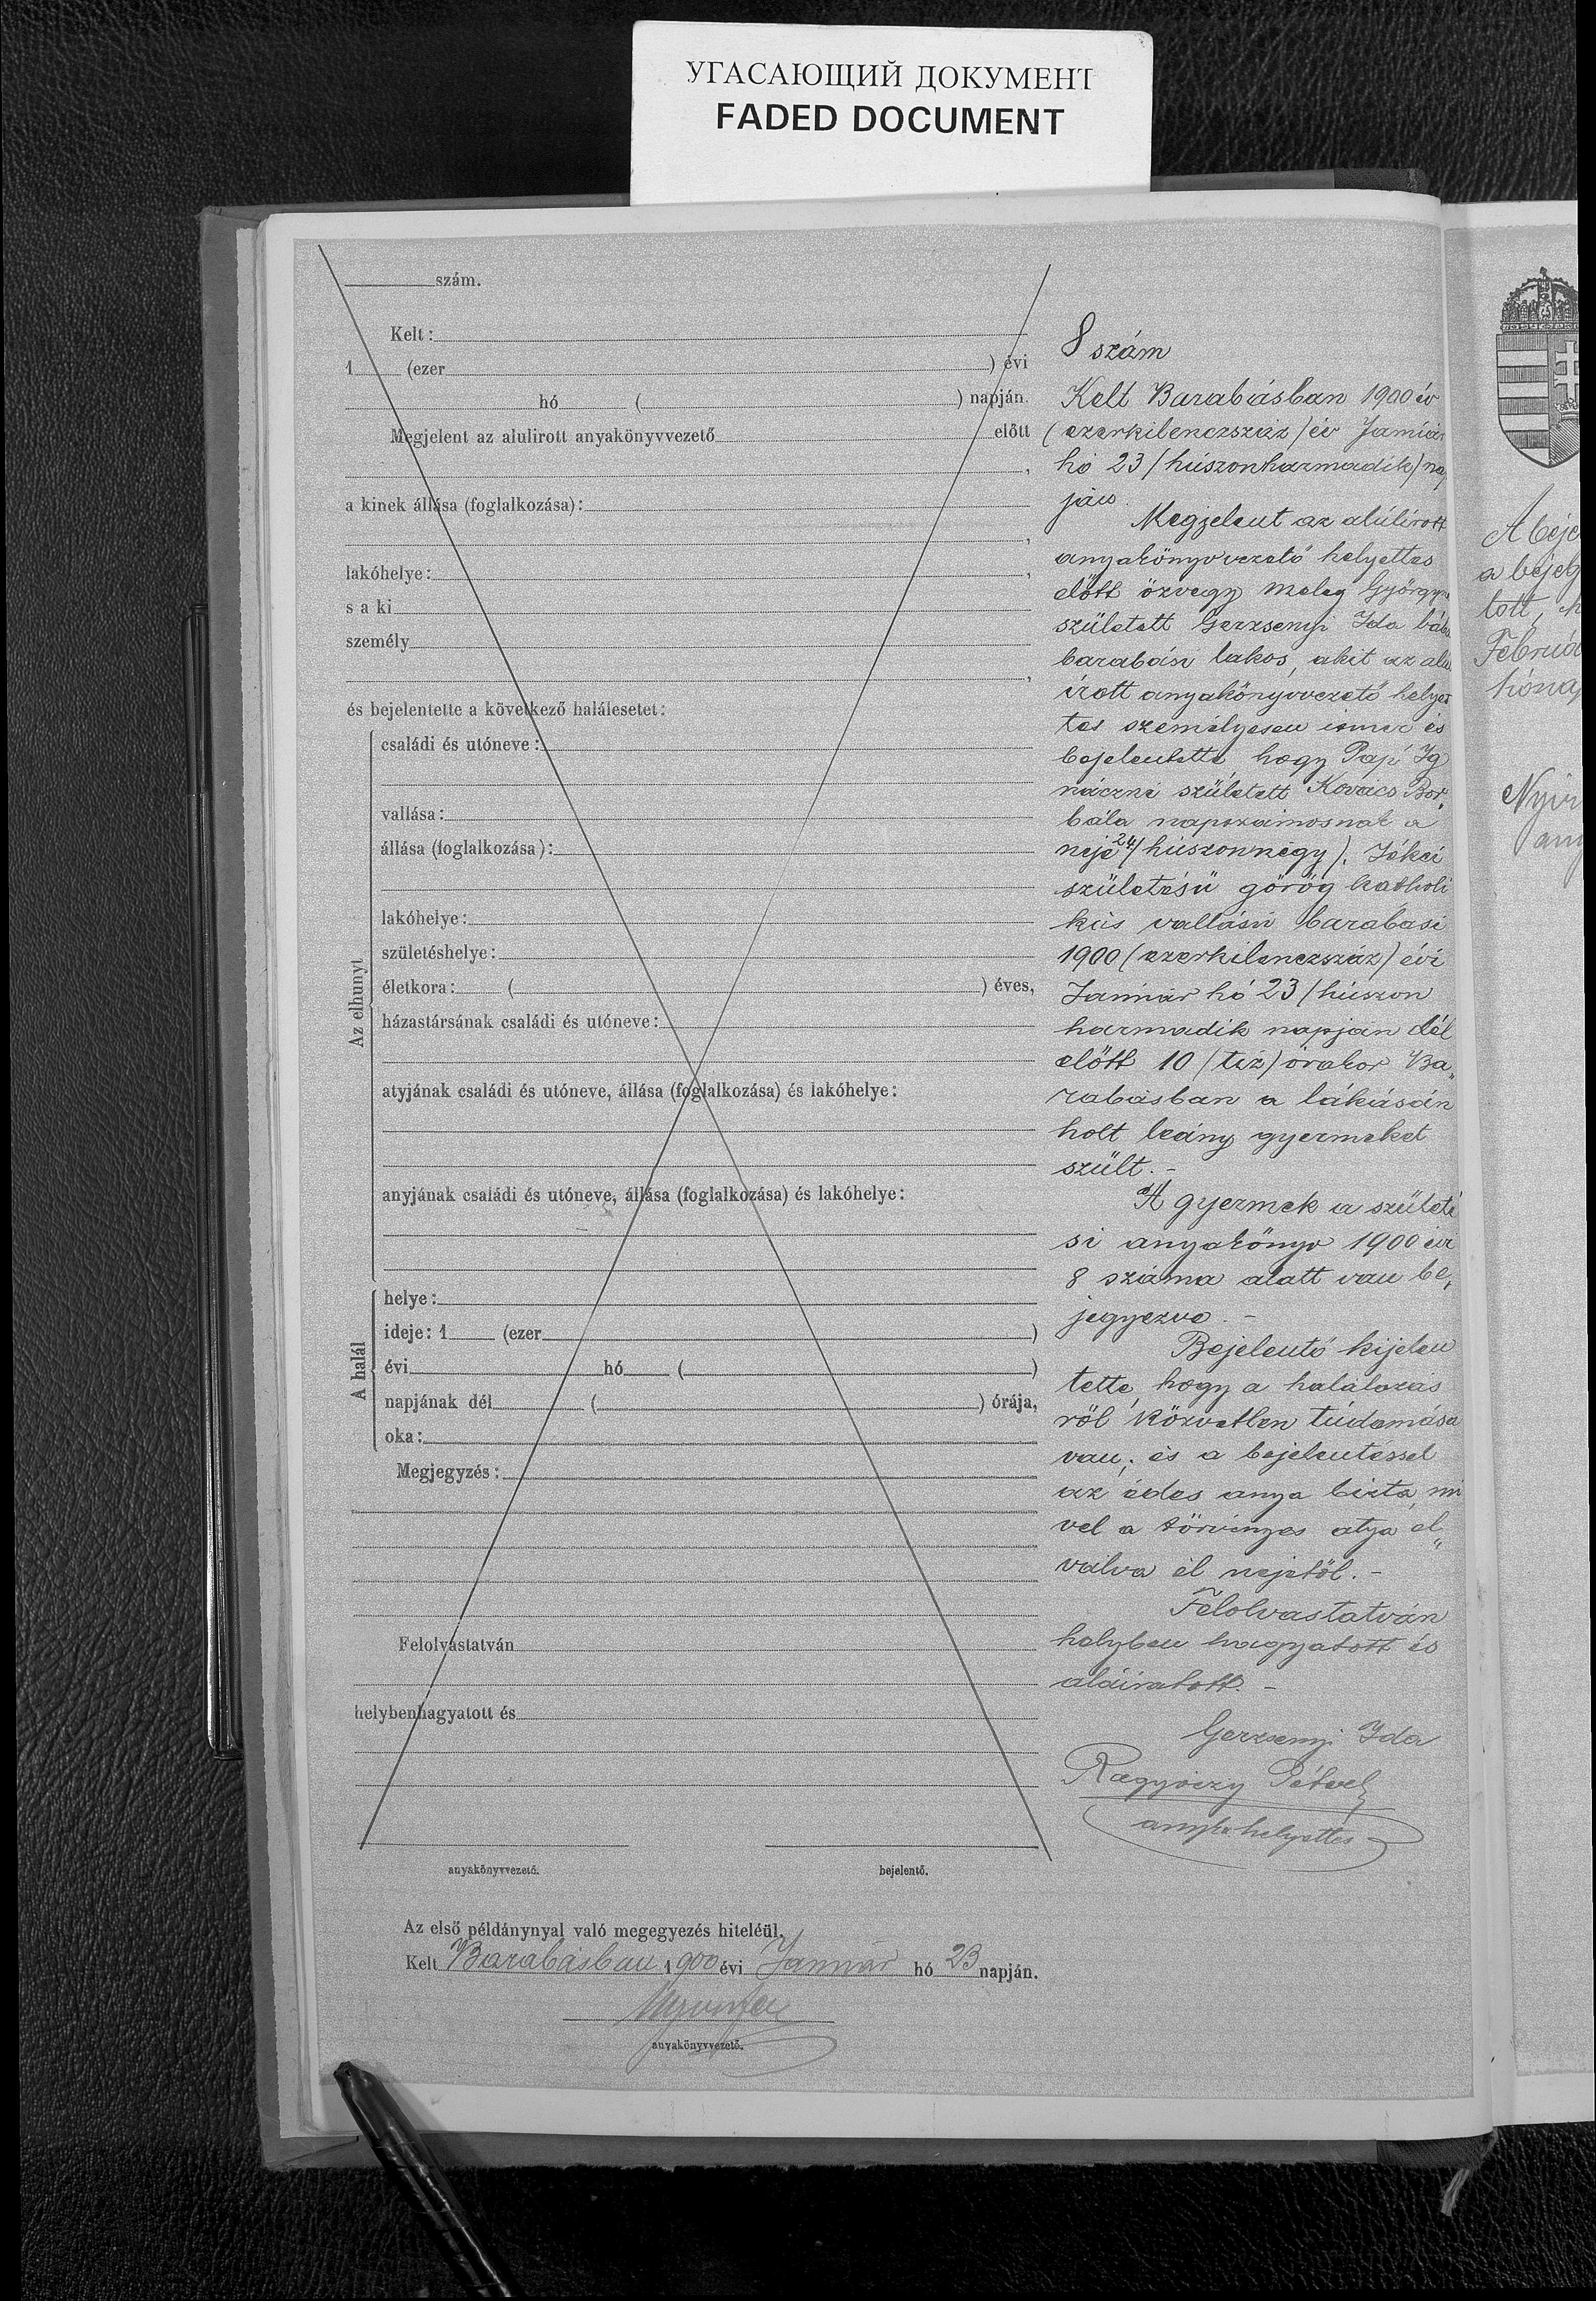 УГАСАЮЩИЙ ДОКУМЕНТ
FADED DOCUMENT
szám.
Kelt:
1 (ezer ) évi
hó ( ) napján.
Megjelent az alulirott anyakönyvvezető előtt
,
a kinek állása (foglalkozása):
,
lakóhelye: ,
s a ki
személy
,
és bejelentette a következő halálesetet:
Az elhunyt
családi és utóneve:
vallása:
állása (foglalkozása):
lakóhelye:
születéshelye:
életkora: ( ) éves,
házastársának családi és utóneve:
atyjának családi és utóneve, állása (foglalkozása) és lakóhelye:
anyjának családi és utóneve, állása (foglalkozása) és lakóhelye:
A halál
helye:
ideje: 1 (ezer )
évi hó ( )
napjának dél ( ) órája,
oka:
Megjegyzés:
Felolvastatván
helybenhagyatott és
anyakönyvvezető. bejelentő.
Az első példánynyal való megegyezés hiteléül.
Kelt Barabásban 1900 évi Január hó 23 napján.
anyakönyvvezető.
8 szám
Kelt Barabásban 1900 év
(ezerkilenczszáz) év Január
hó 23 (húszonharmadik) nap
ján
Megjelent az alúlírott
anyakönyvvezető helyettes
előtt özvegy Meleg Györgyn
született Gerzsenyi Ida bába
barabási lakos, akit az alu
írott anyakönyvvezető helyet
tes személyesen ismer és
bejelentette, hogy Pap Ig
náczné született Kovács Bor
bála napszámosnak a
neje 24 (húszonnégy), Jékei
születésű görög katholi
kús vallású barabasi
1900 (ezerkilenczszáz) évi
Január hó 23 (húszon
harmadik napján dél
előtt 10 (tíz) órakor Ba„
rabásban a lakásán
holt leány gyermeket
szült.-
A gyermek a születé
si anyakönyv 1900 évi
8 száma alatt van be„
jegyezve.-
Bejelentő kijelen
tette, hogy a halálozás
ról közvetlen túdomása
van, és a bejelentéssel
az édes anya bizta, mi
vel a törvényes atya el„
válva él nejetől.-
Felolvastatván
helyben hagyatott és
aláiratott.-
Gerzsenyi Ida
anykvhelyettes
A beje
a bejel
tott, h
Februá
hónap
Nyír
any